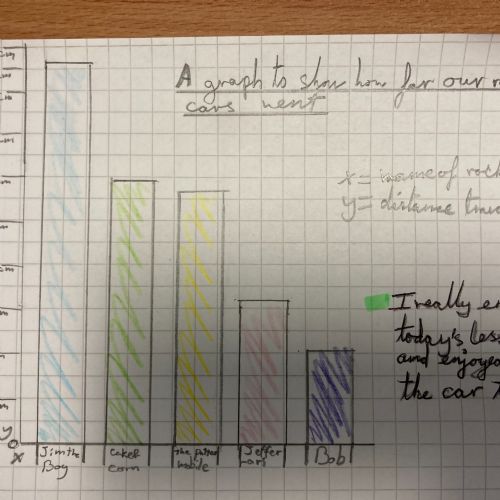 A graph to show how far our
cars went
x = name of rock
y = distance
I really en
today's less
and enjoyed
the car
y
x
Jim the
Boy
caker
corn
the
mobile
Jeffer
Bob